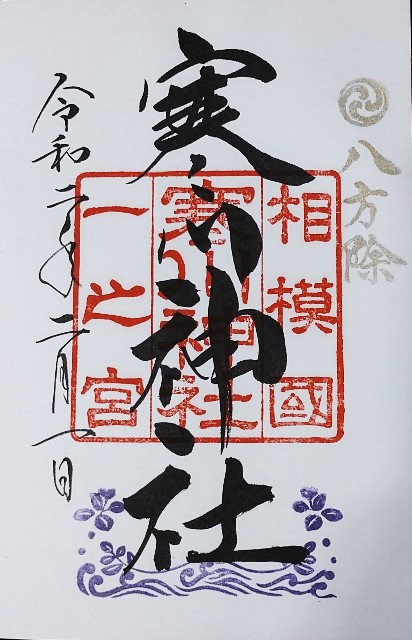 八方除
相模國
寒川神社
一之宮
寒川神社
令和二年二月一日